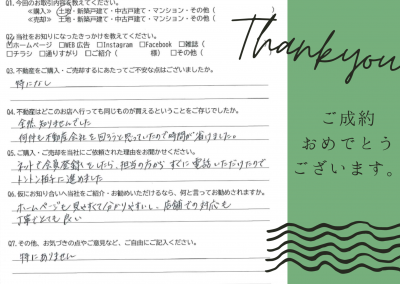 Q1. 今回のお取引内容を教えてください。
≪購入≫ 土地・新築戸建て・中古戸建て・マンション・その他（　　　　）
≪売却≫ 土地・新築戸建て・中古戸建て・マンション・その他（　　　　）
Q2. 当社をお知りになったきっかけを教えてください。
☑ホームページ □WEB広告 □Instagram □Facebook □雑誌（
□チラシ □通りすがり □ご紹介（　　　　様） □その他（
Q3. 不動産をご購入・ご売却するにあたってご不安な点はございましたか。
特になし
Q4. 不動産はどこのお店へ行っても同じものが買えるということをご存じでしたか。
全然知りませんでした
何件も不動産会社を回ろうと思っていたので時間が省けました。
Q5. ご購入・ご売却を当社にご依頼された理由をお聞かせください。
ネットで会員登録をしたら、担当の方からすぐに電話いただけたので
トントン拍子に進めました
Q6. 仮にお知り合いへ当社をご紹介・お勧めいただけるなら、何と言ってお勧めされますか。
ホームページも見やすくて分かりやすいし、店舗での対応も
丁寧でとても良い
Q7. その他、お気づきの点やご意見など、ご自由にご記入ください。
特にありません
Thank you
ご成約
おめでとう
ございます。